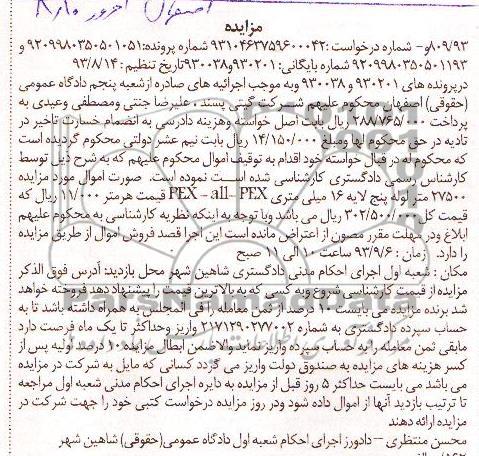 اصفهان امروز
مزایده
۸۰۹/۹۳و- شماره درخواست :۹۳۱۰۴۶۳۷۵۹۶۰۰۰۴۲ شماره پرونده:۹۲۰۹۹۸۰۳۵۰۵۰۱۰۵۱ و
۹۲۰۹۹۸۰۳۵۰۵۰۱۱۹۳ شماره بایگانی: ۹۳۰۲۰۱و۹۳۰۰۳۸ تاریخ تنظیم : ۹۳/۸/۱۴
درپرونده های ۹۳۰۲۰۱ و ۹۳۰۰۳۸ وبه موجب اجرائیه های صادره ازشعبه پنجم دادگاه عمومی
(حقوقی) اصفهان، محکوم علیهم شرکت گیتی پسند ، علیرضا جنتی ومصطفی وعیدی به
پرداخت ۲۸۸۷۶۵/۰۰۰ ریال بابت اصل خواسته وهزینه دادرسی به انضمام خسارت تاخیر در
تادیه در حق محکوم لها ومبلغ ۱۴/۱۵۰/۰۰۰ ریال بابت نیم عشر دولتی محکوم گردیده است
که محکوم له در قبال خواسته خود اقدام به توقیف اموال محکوم علیهم که به شرح ذیل توسط
کارشناس رسمی دادگستری کارشناسی شده است نموده است. صورت اموال مورد مزایده
۲۷۵۰۰ متر لوله پنج لایه ۱۶ میلی متری PEX - all- PEX قیمت هرمتر ۱۱/۰۰۰ ریال که
قیمت کل ۳۰۲/۵۰۰/۰۰۰ ریال می باشد وبا توجه به اینکه نظریه کارشناسی به محکوم علیهم
ابلاغ ودر مهلت مقرر مصون از اعتراض مانده است این اجرا قصد فروش اموال از طریق مزایده
را دارد. زمان : ۹۳/۹/۶ ساعت ۱۰ الی ۱۱ صبح
مکان : شعبه اول اجرای احکام مدنی دادگستری شاهین شهر محل بازدید: آدرس فوق الذکر
مزایده از قیمت کارشناسی شروع وبه کسی که به بالاترین قیمت را پیشنهاد دهد فروخته خواهد
شد برنده مزایده می بایست ۱۰ درصد از ثمن معامله رافی المجلس به همراه داشته باشد تا به
حساب سپرده دادگستری به شماره ۲۱۷۱۲۹۰۲۷۷۰۰۲ واریز وحداکثر تا یک ماه فرصت دارد
مابقی ثمن معامله را به حساب سپرده واریز نماید والا ضمن ابطال مزایده ۱۰ درصد اولیه پس از
کسر هزینه های مزایده به صندوق دولت واریز می گردد کسانی که مایل به شرکت در مزایده
می باشد می بایست حداکثر ۵ روز قبل از مزایده به دایره اجرای احکام مدنی شعبه اول مراجعه
تا ترتیب بازدید آنها از اموال داده شود ودر روز مزایده درخواست کتبی خود را جهت شرکت در
مزایده ارائه دهند
محسن منتظری – دادورز اجرای احکام شعبه اول دادگاه عمومی(حقوقی) شاهین شهر